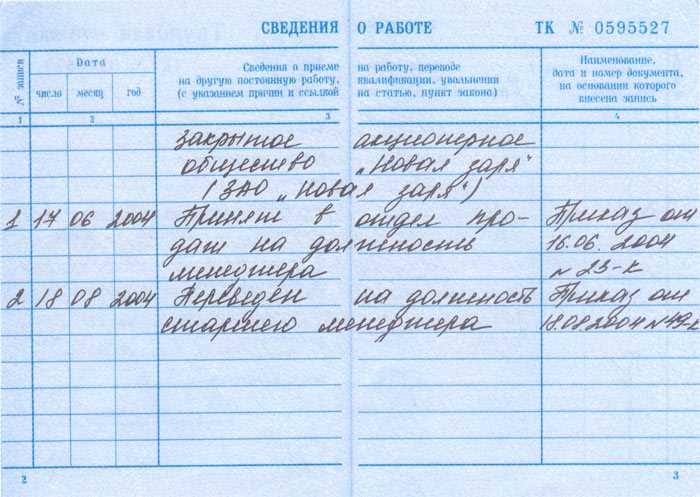 СВЕДЕНИЯ О РАБОТЕ ТК № 0595527
№ записи
Дата
число месяц год
Сведения о приеме на работу, переводе
на другую постоянную работу, квалификации, увольнении
(с указанием причин и ссылкой на статью, пункт закона)
Наименование,
дата и номер документа,
на основании которого
внесена запись
1 2 3 4
Закрытое акционерное
общество „Новая заря“
(ЗАО „Новая заря“)
1 17 06 2004 Принят в отдел про- Приказ от
даж на должность 16.06.2004
менеджера № 23-к
2 18 08 2004 Переведен на должность Приказ от
старшего менеджера 18.08.2004 № 49-к
2 3